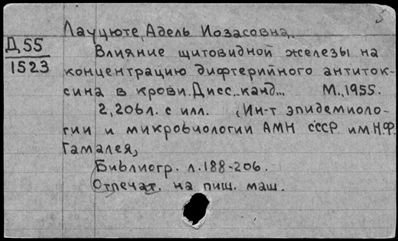 Лауцюте, Адель Иозасовна.
Д 55
1523
Влияние щитовидной железы на
концентрацию дифтерийного антиток-
сина в крови. Дисс. канд... М., 1955.
2, 206 л. с илл. (Ин-т эпидемиоло-
гии и микробиологии АМН СССР им. Н.Ф.
Гамалея)
Библиогр. л. 188-206.
Отпечат. на пиш. маш.